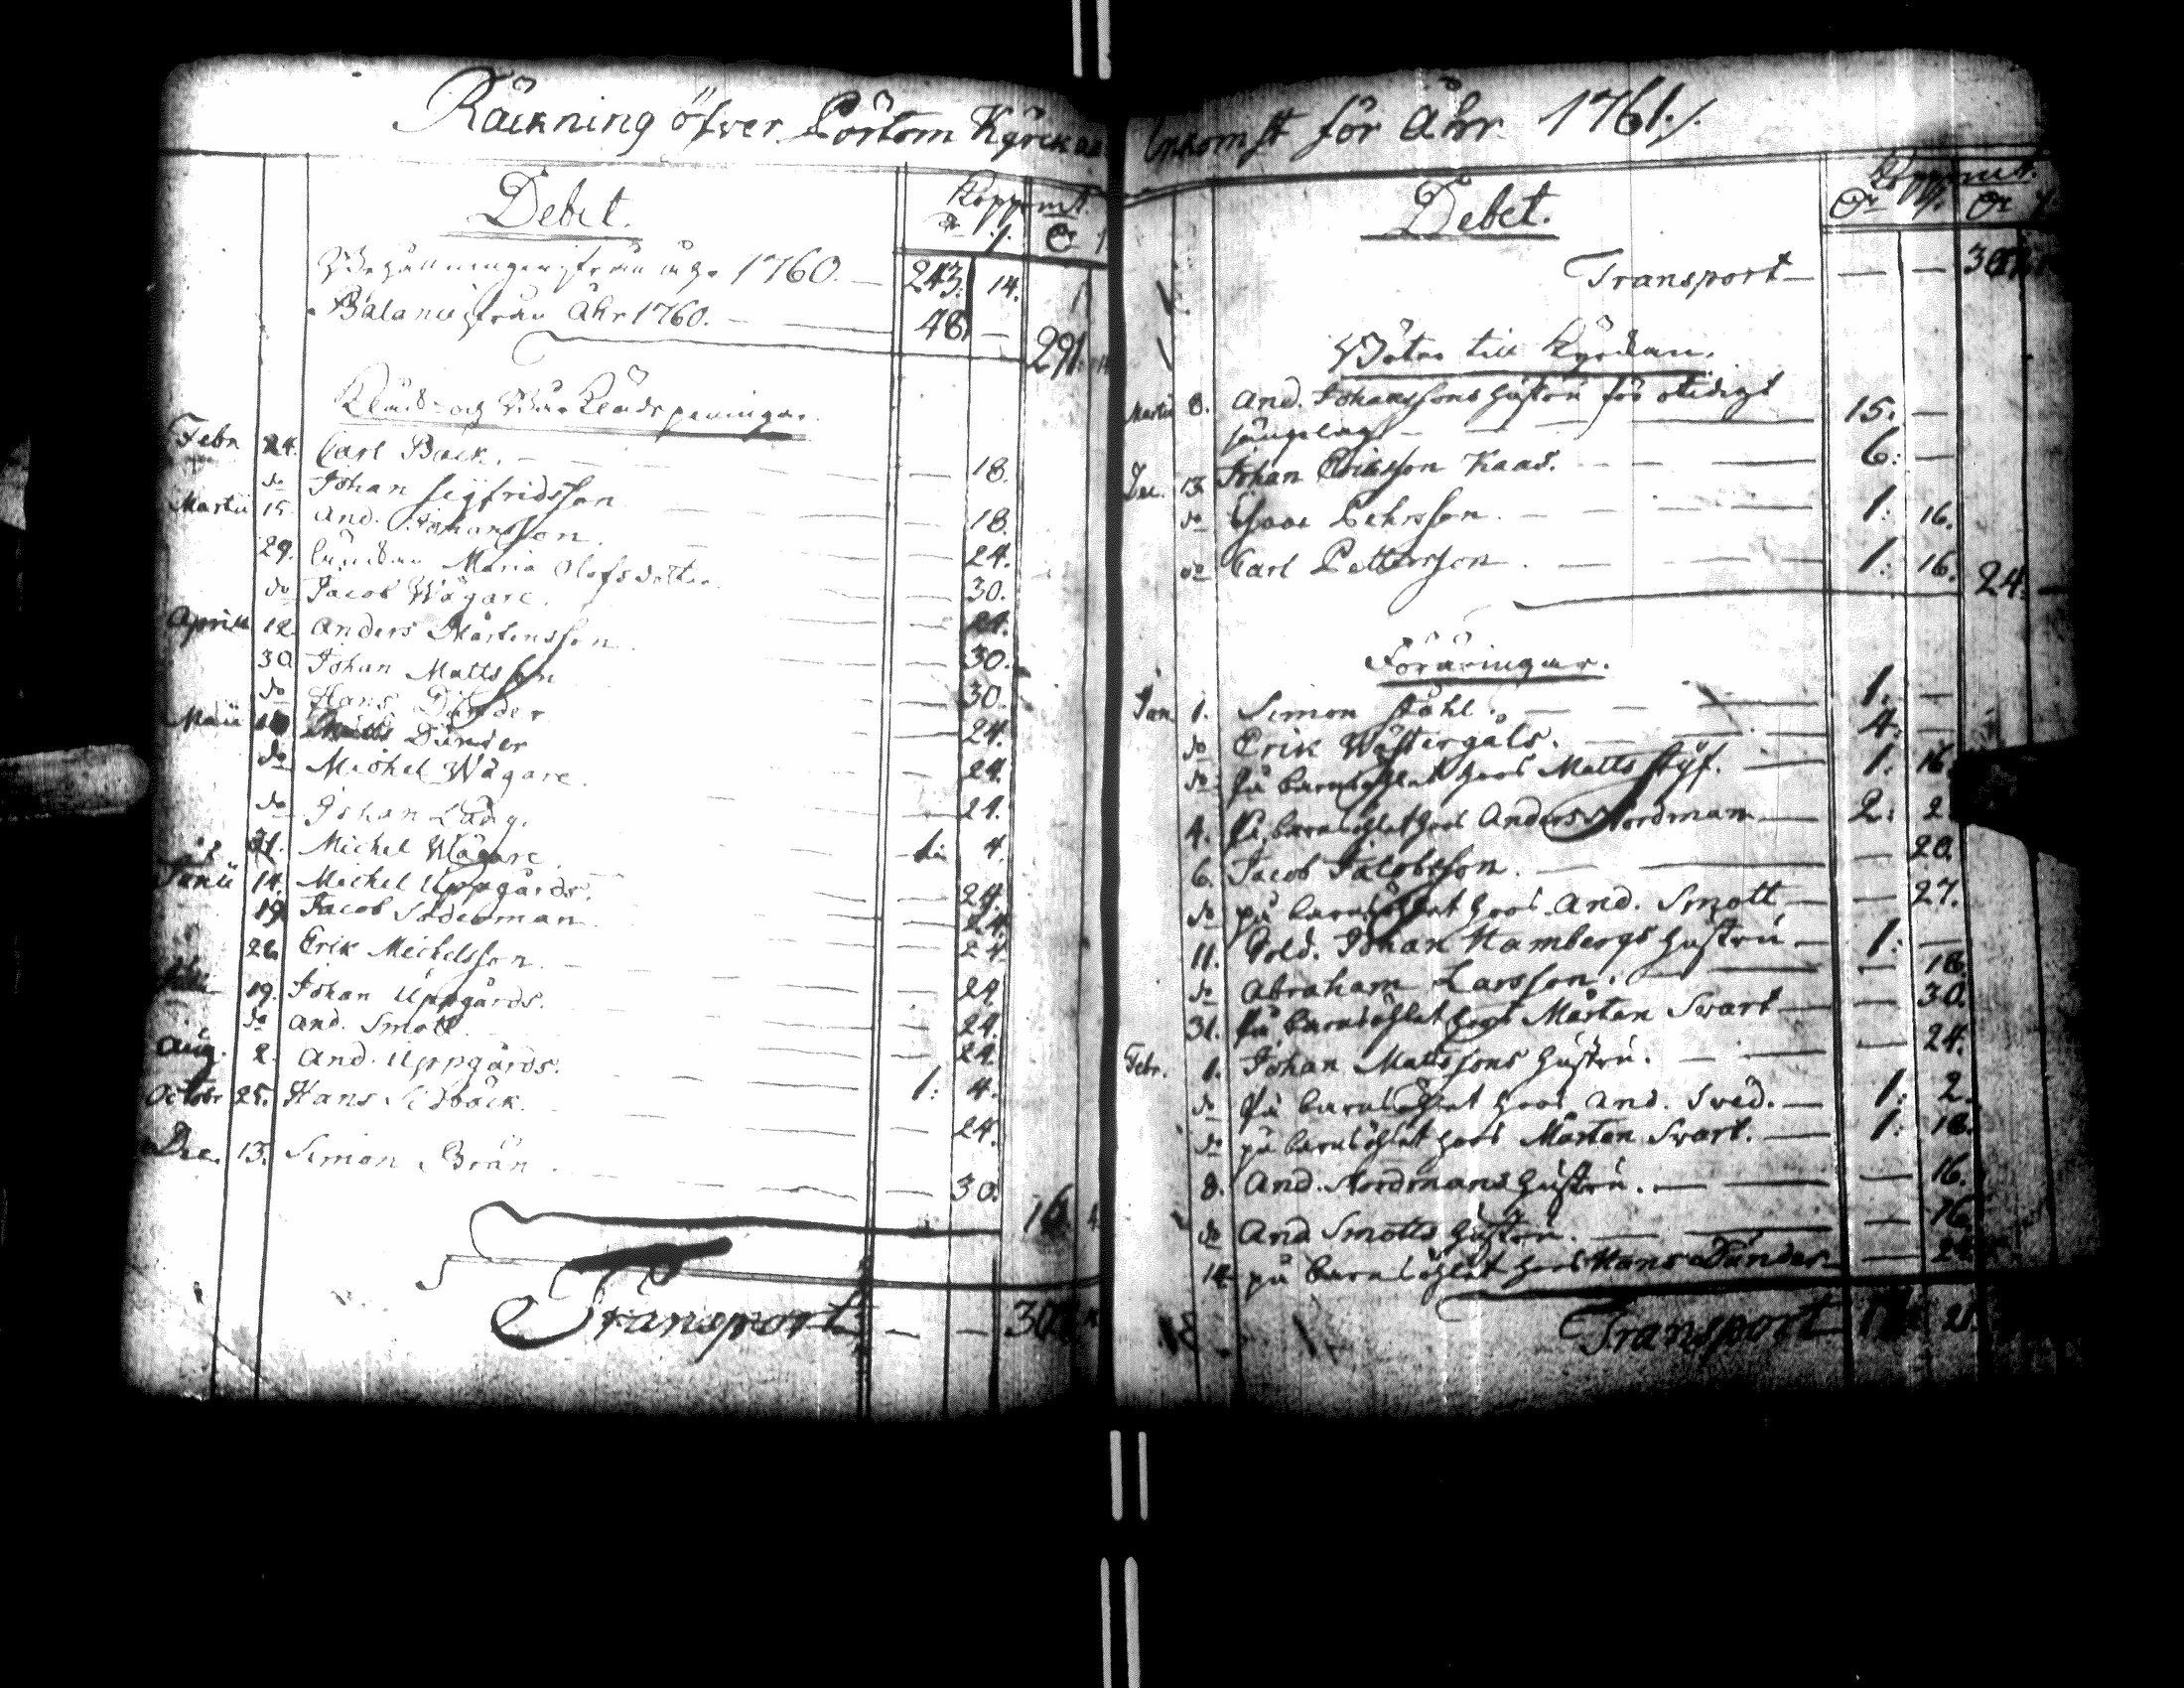 Räckning öfver Pörtom Kyrckas
Debet. Koppomt.
Behållningen ifrån åhr 1760. — 243. 14.
Balance ifrån Åhr 1760. — 48. —
291.
Kläde- och Bårklädspenningar.
Febr. 24. Carl Back. — — 18.
do Johan Sigfridsson — 18.
Martii 15. And. Johansson. — 24.
29. Maria Olofsdotter — 30.
do Jacob Wägare. — 24.
Aprill 12. Anders Mårtensson — 30.
30. Johan Mattsson — 30.
do Hans Dunder — 24.
Maii Matts Dunder — 24.
do Michel Wägare. — 24.
do Johan Lång. 4.
31. Michel Wägare.
Junii 14. Michel Uppgårds. — 24.
19. Jacob Söderman — 24.
26. Erik Michelsson. — 24.
19. Johan Uppgårds. — 24.
do And. Smott. — 24.
Aug. 2. And. Uppgårds. — 24.
Octobr. 25. Hans Sidbäck. 1: 4.
24.
Dec. 13. Simon Brän. — 30.
16.
Transport — — 307.
Inkomst för Åhr 1761./.
Debet. Koppomt.
Transport — — —
Böter till Kyrckan.
Martii 8. And. Johanssons hustru för otidigt
sängelag — — 15. —
Dec. 13. Johan Eriksson Kaas. — 6: —
do Pehrsson. — 1: 16.
do Carl Pettersson. — 1: 16.
24. —
Föräringar.
Jan. 1. Simon Ståhl. — 1. —
do Erik Wästergåls. — 4. —
do På barnsöhlet hoos Matts Styf. — 1: 16.
4. På barnsöhlet hoos Anders Nordman — 2: 2
6. Jacob Jacobsson. — — 20.
do på barnsöhlet hoos And. Smott — — 27.
11. Sold. Johan Hambergs hustru. — 1: —
do Abraham Larsson. — — 18.
31. På barnsöhlet hoos Mårten Svart — — 30.
Febr. 1. Johan Mattssons hustru. — — 24.
do På barnsöhlet hoos And. Sved. — 1: 2.
do på barnsöhlet hoos Mårten Svart. — 1: 18.
8. And. Nordmans hustru. — — 16.
do And Smotts hustru. — — 16.
14. på barnsöhlet hoos Hans Dunder — — 24.
Transport 21.